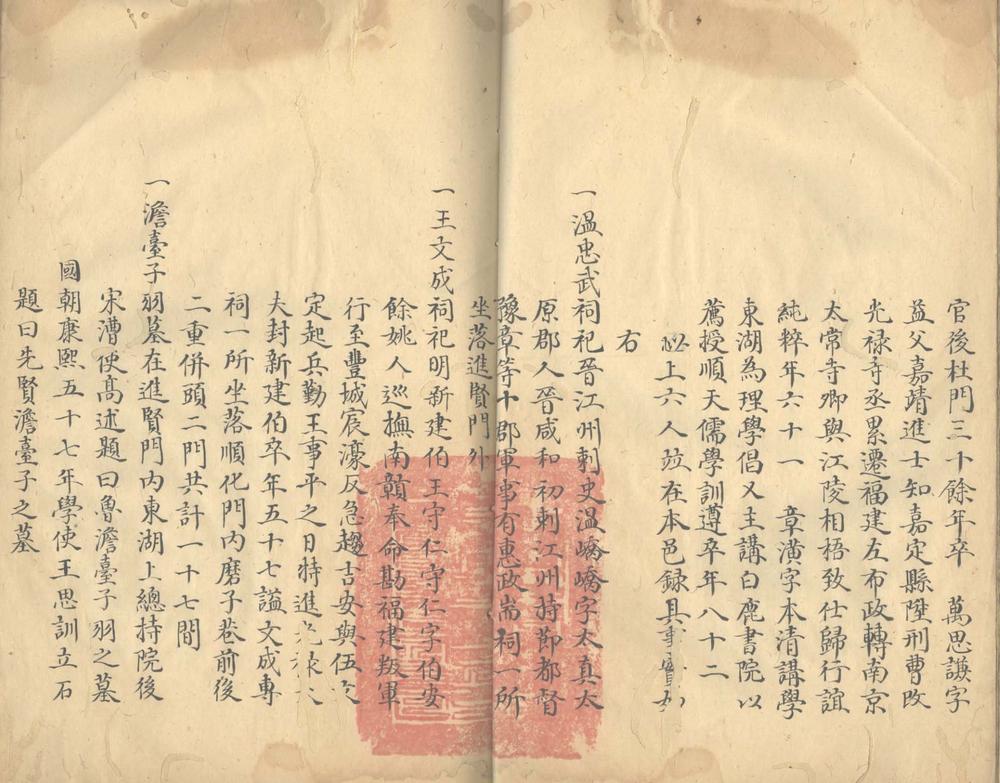 官後杜門三十餘年卒　萬思謙字
益父嘉靖進士知嘉定縣陞刑曹改
光禄寺丞累遷福建左布政轉南京
太常寺卿與江陵相梧致仕歸行誼
純粹年六十一　章潢字本清講學
東湖為理學倡又主講白鹿書院以
薦授順天儒學訓遵卒年八十二
上六人竝在本邑錄具事實如
右
一溫忠武祠祀晉江州刺史溫嶠嶠字太真太
原郡人晉咸和初刺江州持節都督
豫章等十郡軍事有惠政耑祠一所
坐落進賢門外
一王文成祠祀明新建伯王守仁守仁字伯安
餘姚人巡撫南贛奉命勘福建叛軍
行至豐城宸濠反急趨吉安與伍
定起兵勤王事平之日特進
夫封新建伯卒年五十七謚文成專
祠一所坐落順化門内磨子巷前後
二重併頭二門共計一十七間
一澹臺子羽墓在進賢門内東湖上總持院後
宋漕使高述題曰魯澹臺子羽之墓
國朝康熙五十七年學使王思訓立石
題曰先賢澹臺子之墓